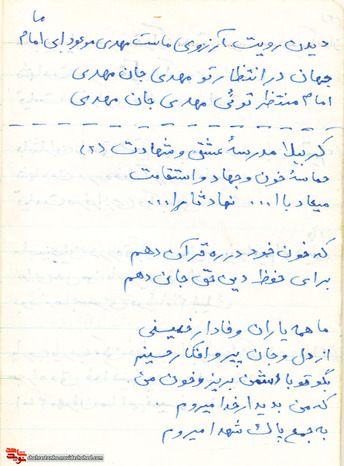 ما
دیدن رویت، آرزوی ماست مهدی موعود ای امام
جهان در انتظار تو مهدی جان مهدی
امام منتظر توئی مهدی جان مهدی
کربلا مدرسهٔ عشق و شهادت (۲)
حماسهٔ خون و جهاد و استقامت
میعاد با ا... نهاد ثارا...
که خون خود در ره قرآن دهم
برای حفظ دین حق جان دهم
ما همه یاران وفادار خمینی
از دل و جان پیرو افکار حسینیم
بگو تو با دشمن بریز و خون من
که من بدیدار خدا میروم
به جمع پاک شهدا میروم